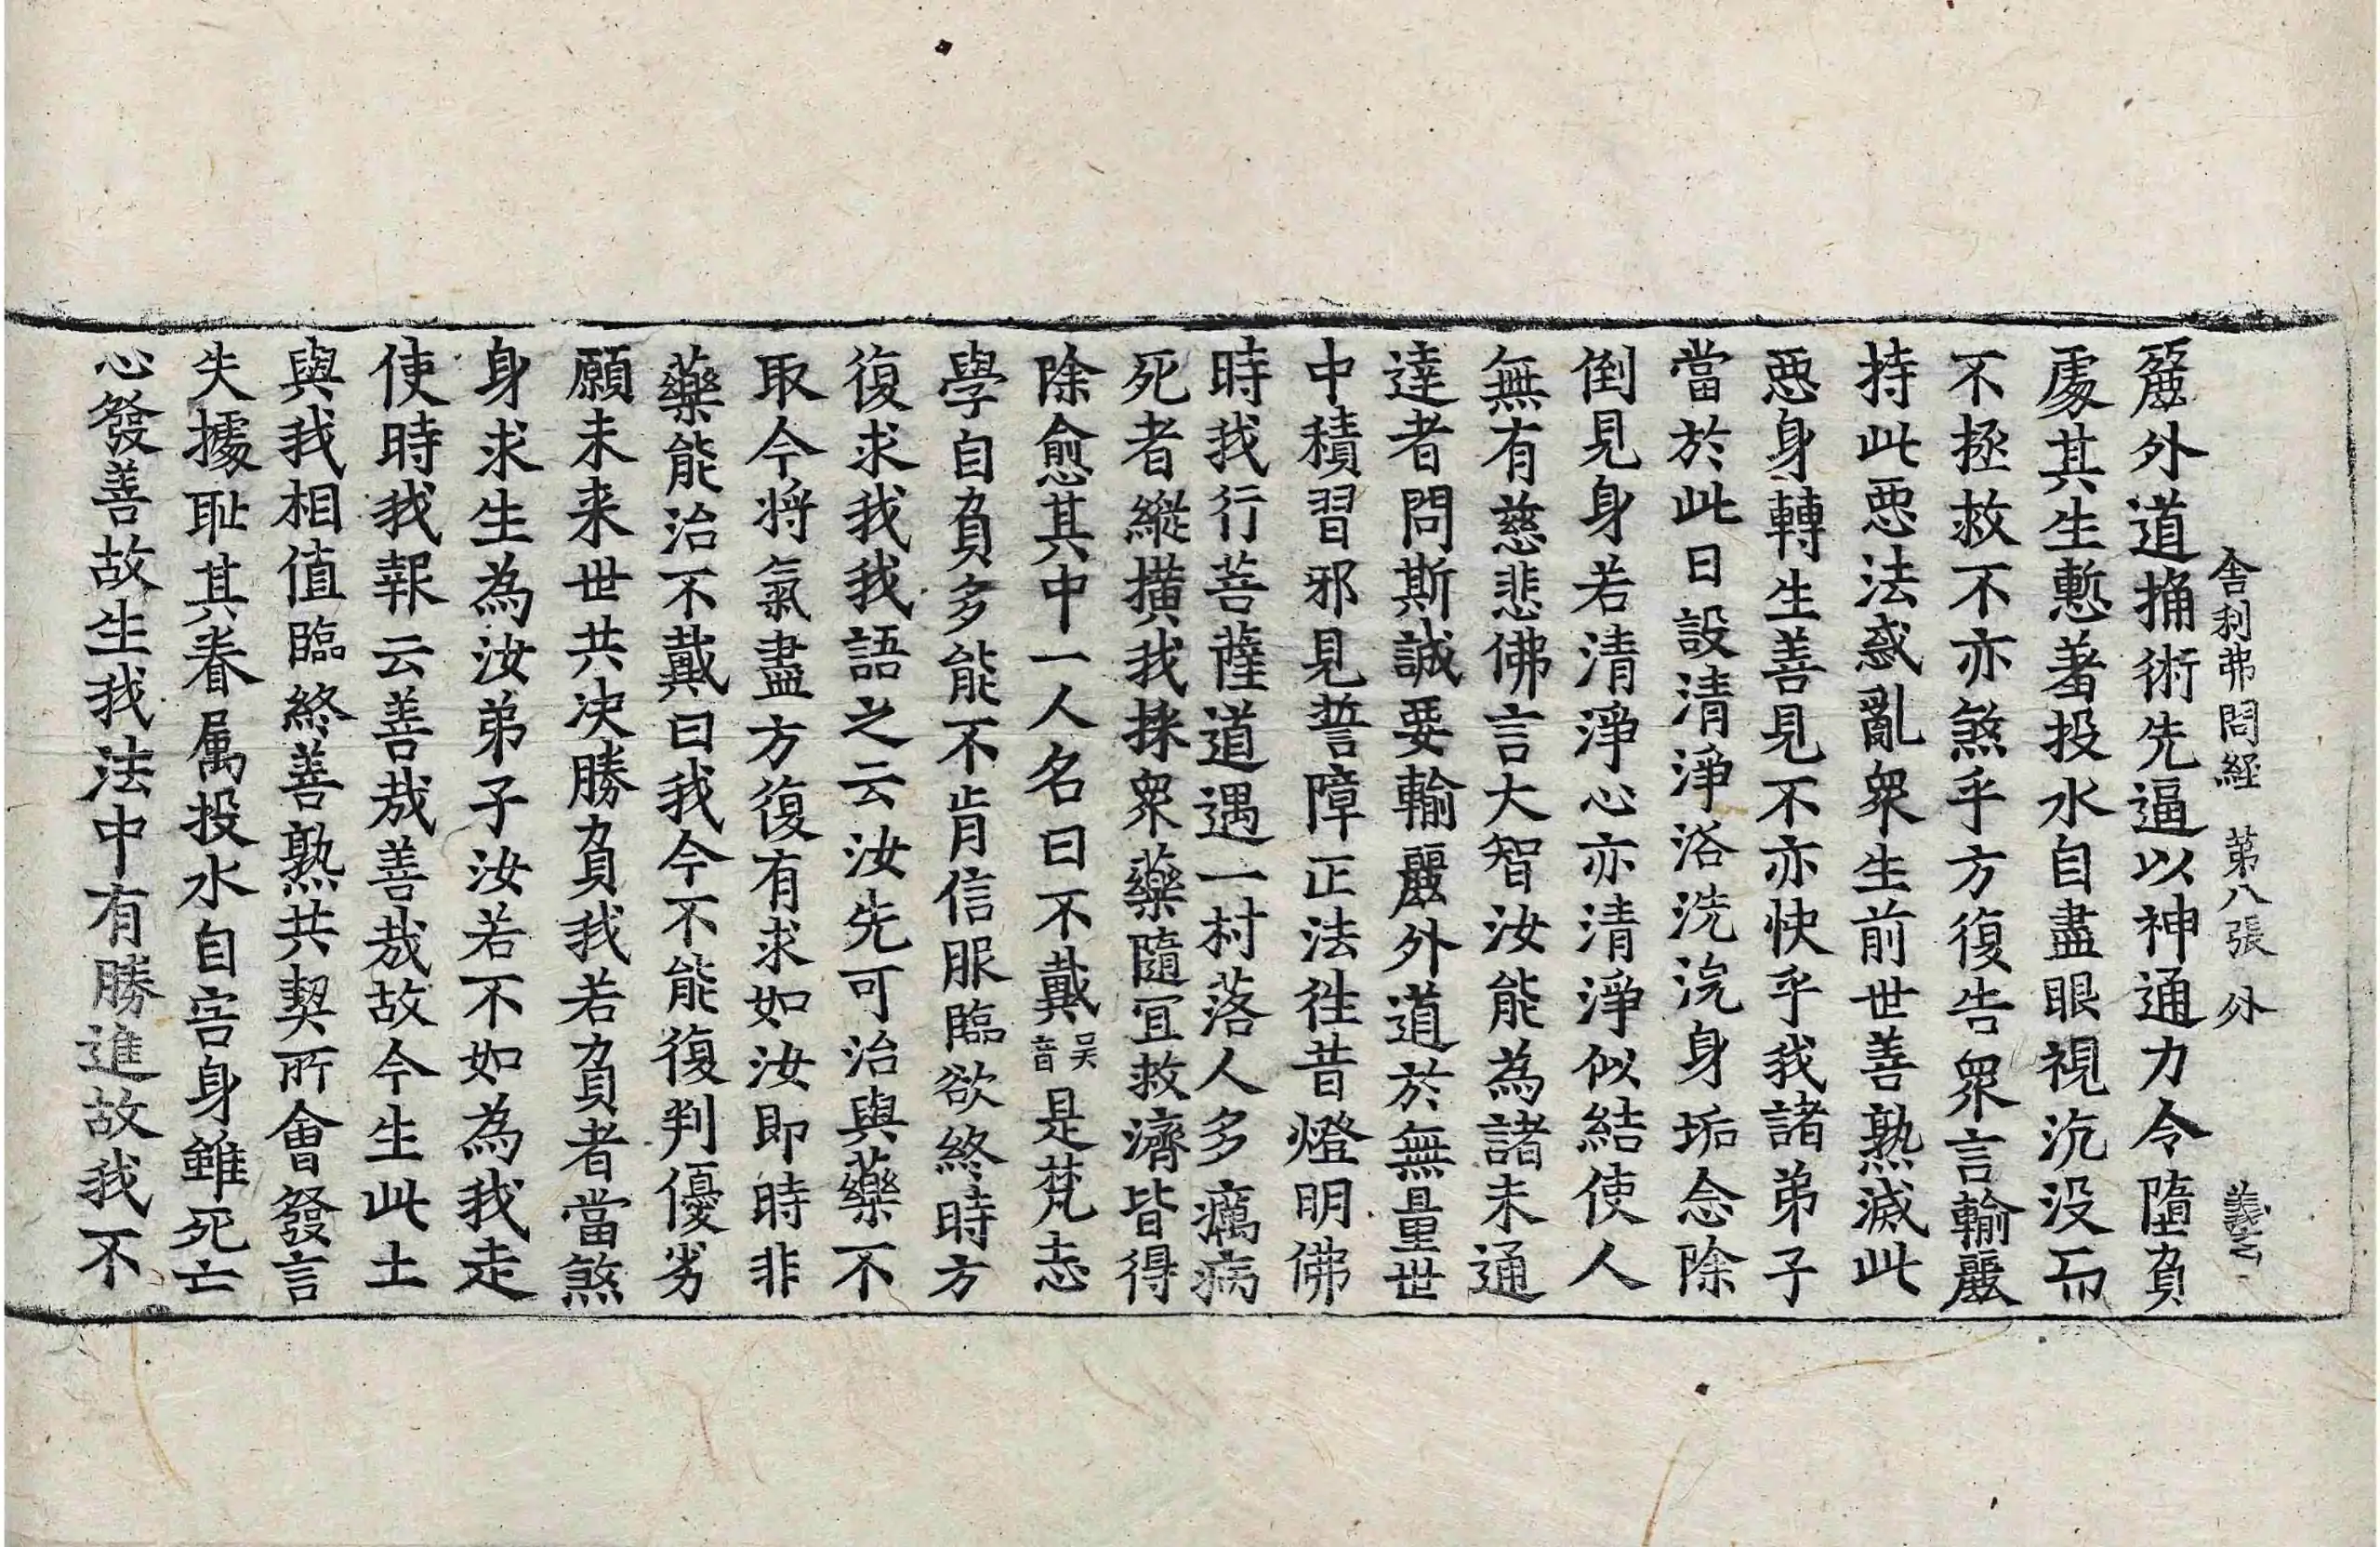 舍利弗問経 第八張 外 義玄
䴡外道捅術先逼以神通力令墮負
處其生慙著投水自盡眼視沉没而
不拯救不亦煞乎方復告衆言輸䴡
持此惡法惑亂衆生前世善熟滅此
惡身轉生善見不亦快乎我諸弟子
當於此日設清淨浴洗浣身垢念除
倒見身若清淨心亦清淨似結使人
無有慈悲佛言大智汝能為諸未通
達者問斯誠要輸䴡外道於無量世
中積習邪見誓障正法徃昔燈明佛
時我行菩薩道遇一村落人多癘病
死者縱橫我採衆藥隨冝救濟皆得
除愈其中一人名曰不戴吴音是梵志
學自負多能不肯信服臨欲終時方
復求我我語之云汝先可治與藥不
取今將氣盡方復有求如汝即時非
藥能治不戴曰我今不能復判優劣
願未来世共决勝負我若負者當煞
身求生為汝弟子汝若不如為我走
使時我報云善哉善哉故今生此土
與我相值臨終善熟共契所會發言
失據耻其眷属投水自害身雖死亡
心發善故生我法中有勝進故我不